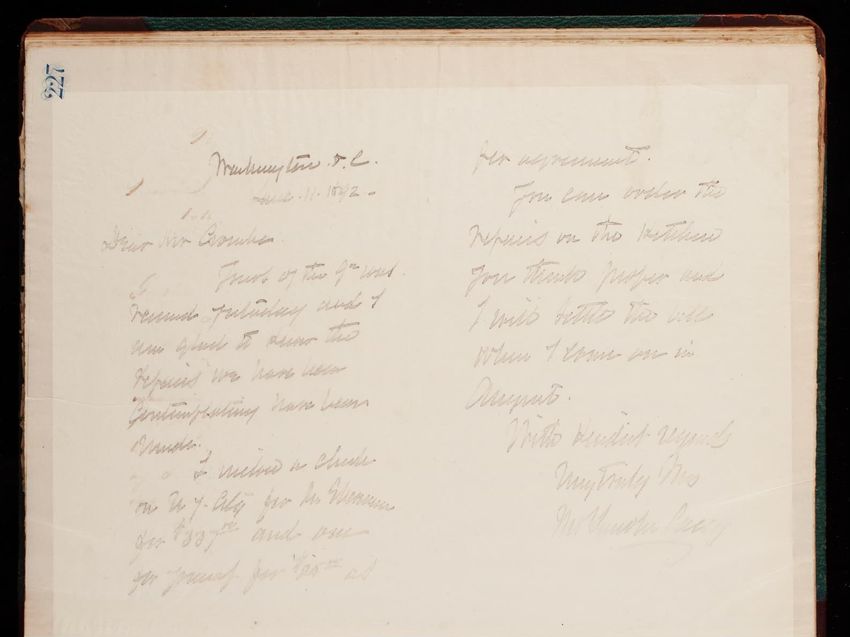 227
Washington. D. C.
June. 11. 1892.
Dear Mr
Yours of the 9th inst.
received yesterday and I
am glad to know the
repairs we have been
Contemplating have been
made.
I enclose a check
on N. Y. City for Mr
for $337 and one
for yourself for $25 as
per agreement.
You can order the
repairs on the kitchen
you think proper and
I will settle the bill
when I come on in
August.
With kindest regards
Very truly Yrs